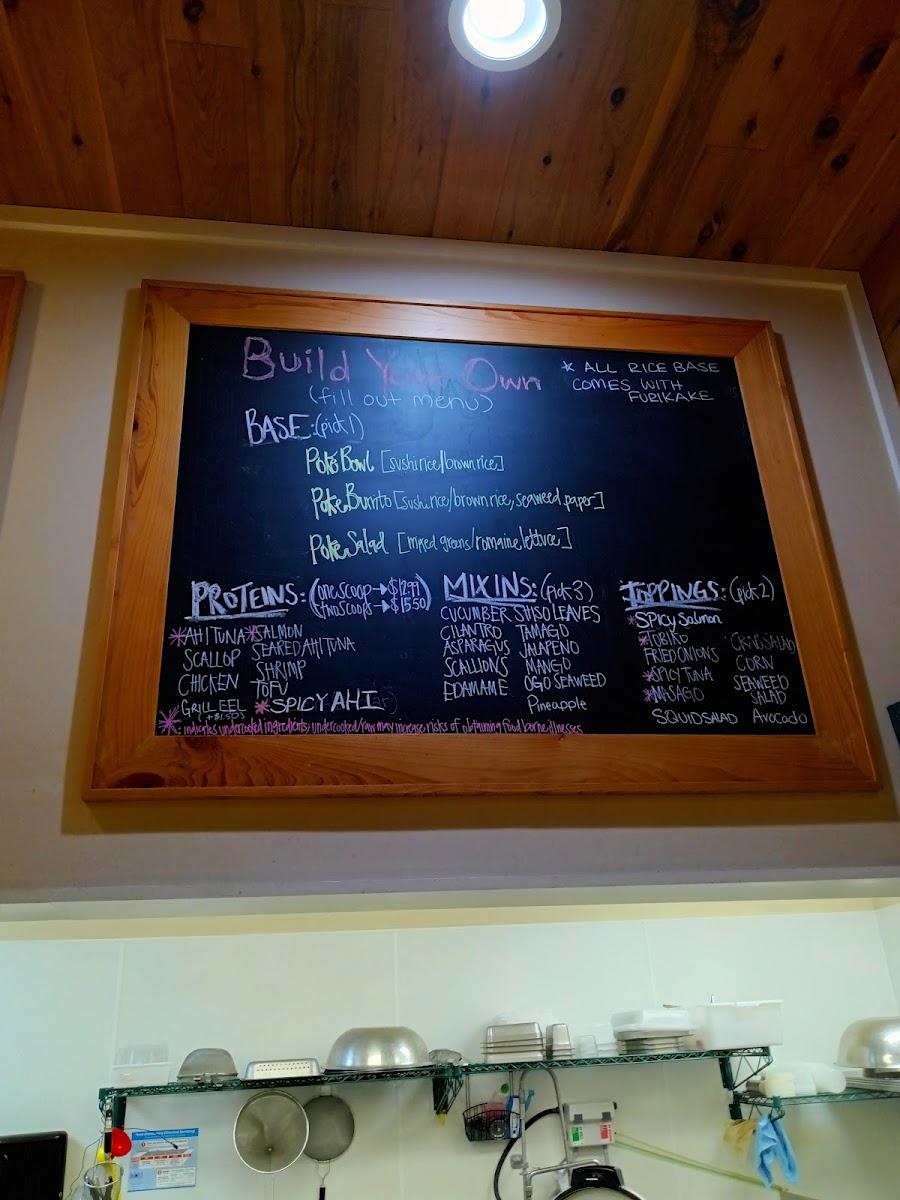 Build Your Own
(fill out menu)
* ALL RICE BASE
COMES WITH
FURIKAKE
BASE: (pick 1)
Poké Bowl [sushi rice/brown rice]
Poke Burrito [sushi rice/brown rice, seaweed paper]
Poké Salad [mixed greens/romaine lettuce]
PROTEINS: (one scoop → $12.99
two scoops → $15.50)
*AHI TUNA *SALMON
SCALLOP SEARED AHI TUNA
CHICKEN SHRIMP
GRILL EEL TOFU
(+$1.50) *SPICY AHI
MIX INS: (pick 3)
CUCUMBER SHISO LEAVES
CILANTRO TAMAGO
ASPARAGUS JALAPENO
SCALLIONS MANGO
EDAMAME OGO SEAWEED
Pineapple
TOPPINGS: (pick 2)
*SPICY Salmon
*TOBIKO CRAB SALAD
FRIED ONIONS CORN
*SPICY TUNA SEAWEED
*MASAGO SALAD
SQUID SALAD Avocado
*: indicates undercooked ingredients; undercooked/raw may increase risks of obtaining food borne illnesses